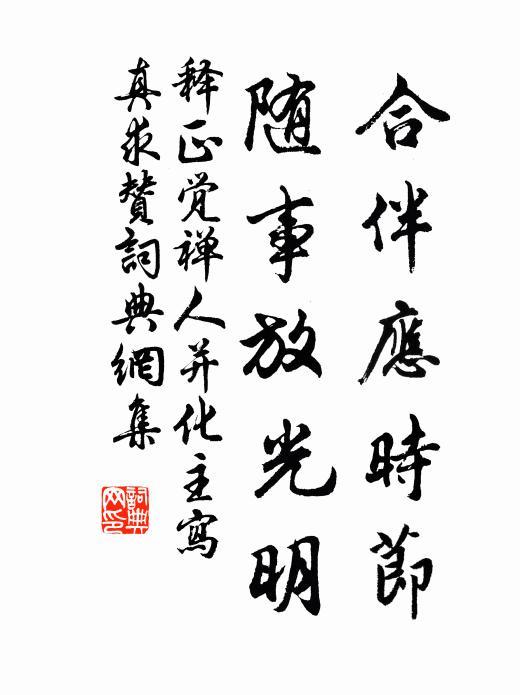 合伴應時節
随事放光明
释正觉禅人并化主寫
真求贊詞典網集
詞典网印